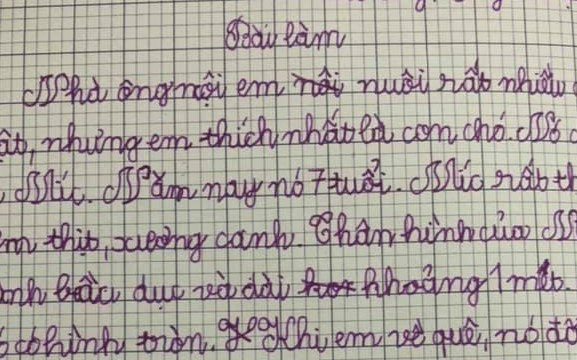 Bài làm
Nhà ông nội em nuôi rất nhiều
ật, nhưng em thích nhất là con chó. Nó
Míc. Năm nay nó 7 tuổi. Míc rất th
m thịt, xương canh. Thân hình của M
nh bầu dục và dài khoảng 1 mét.
có hình tròn. Khi em về quê, nó đã